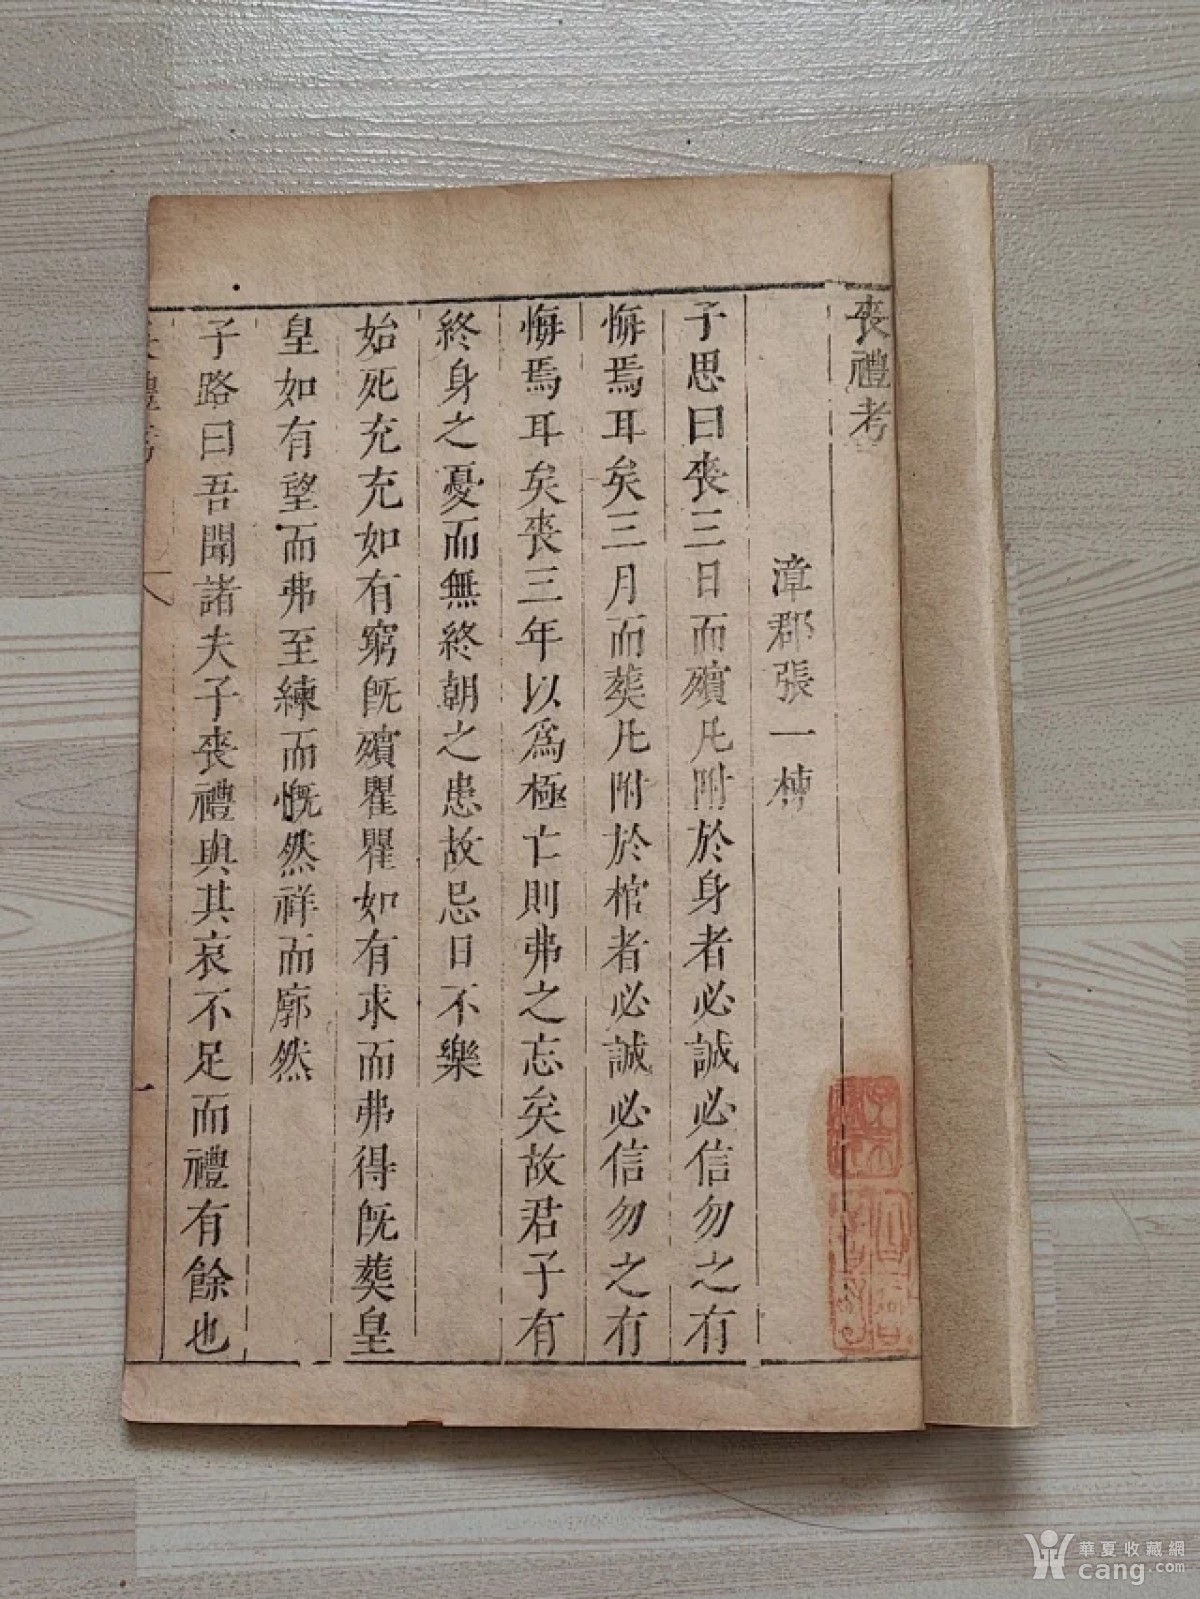 喪禮考
漳郡張一棟
子思曰喪三日而殯凡附於身者必誠必信勿之有
悔焉耳矣三月而葬凡附於棺者必誠必信勿之有
悔焉耳矣喪三年以爲極亡則弗之忘矣故君子有
終身之憂而無終朝之患故忌日不樂
始死充充如有窮旣殯瞿瞿如有求而弗得旣葬皇
皇如有望而弗至練而慨然祥而廓然
子路曰吾聞諸夫子喪禮與其哀不足而禮有餘也
禮考
一
華夏收藏網
cang.com